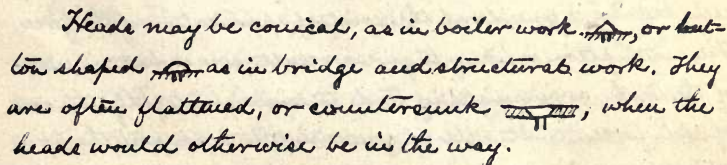 Heads may be conical, as in boiler work, or but-
ton shaped as in bridge and structural work. They
are often flattened, or countersunk, when the
heads would otherwise be in the way.